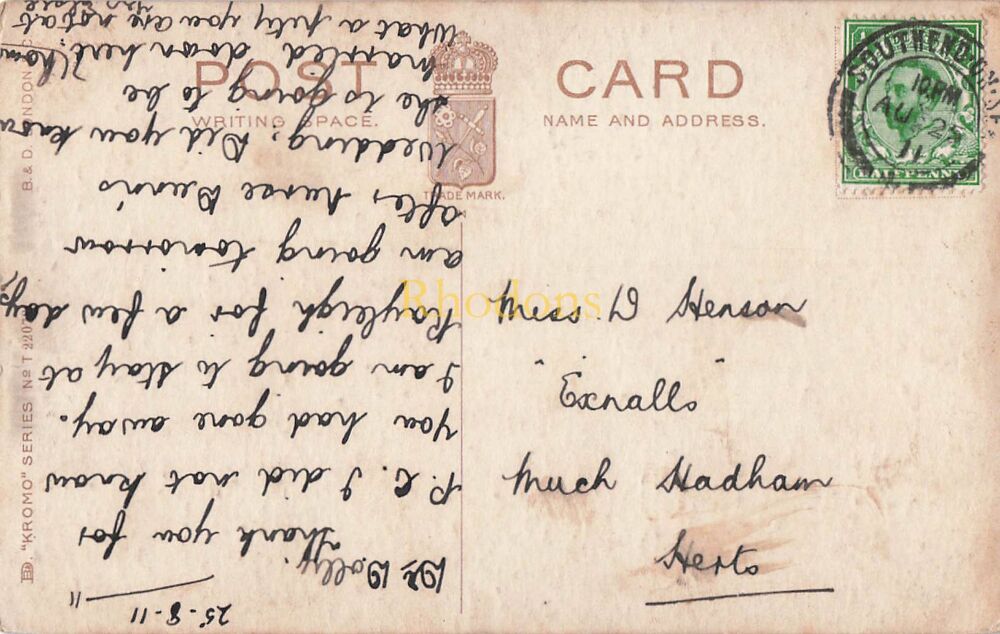 POST CARD
WRITING SPACE.
NAME AND ADDRESS.
TRADE MARK.
B. & D. LONDON
"KROMO" SERIES No T 220
SOUTHEND-ON-SEA
10 PM
AU 25
11
HALFPENNY
Rhodons
Miss D Henson
"Exnalls"
Much Hadham
Herts
25-8-11
Dr Dolly.
Thank you for
P.C. I did not know
you had gone away.
I am going to stay at
Rayleigh for a few days
am going tomorrow
after nurse
wedding. Did you know
she is going to be
married down here
What a pity you are not at